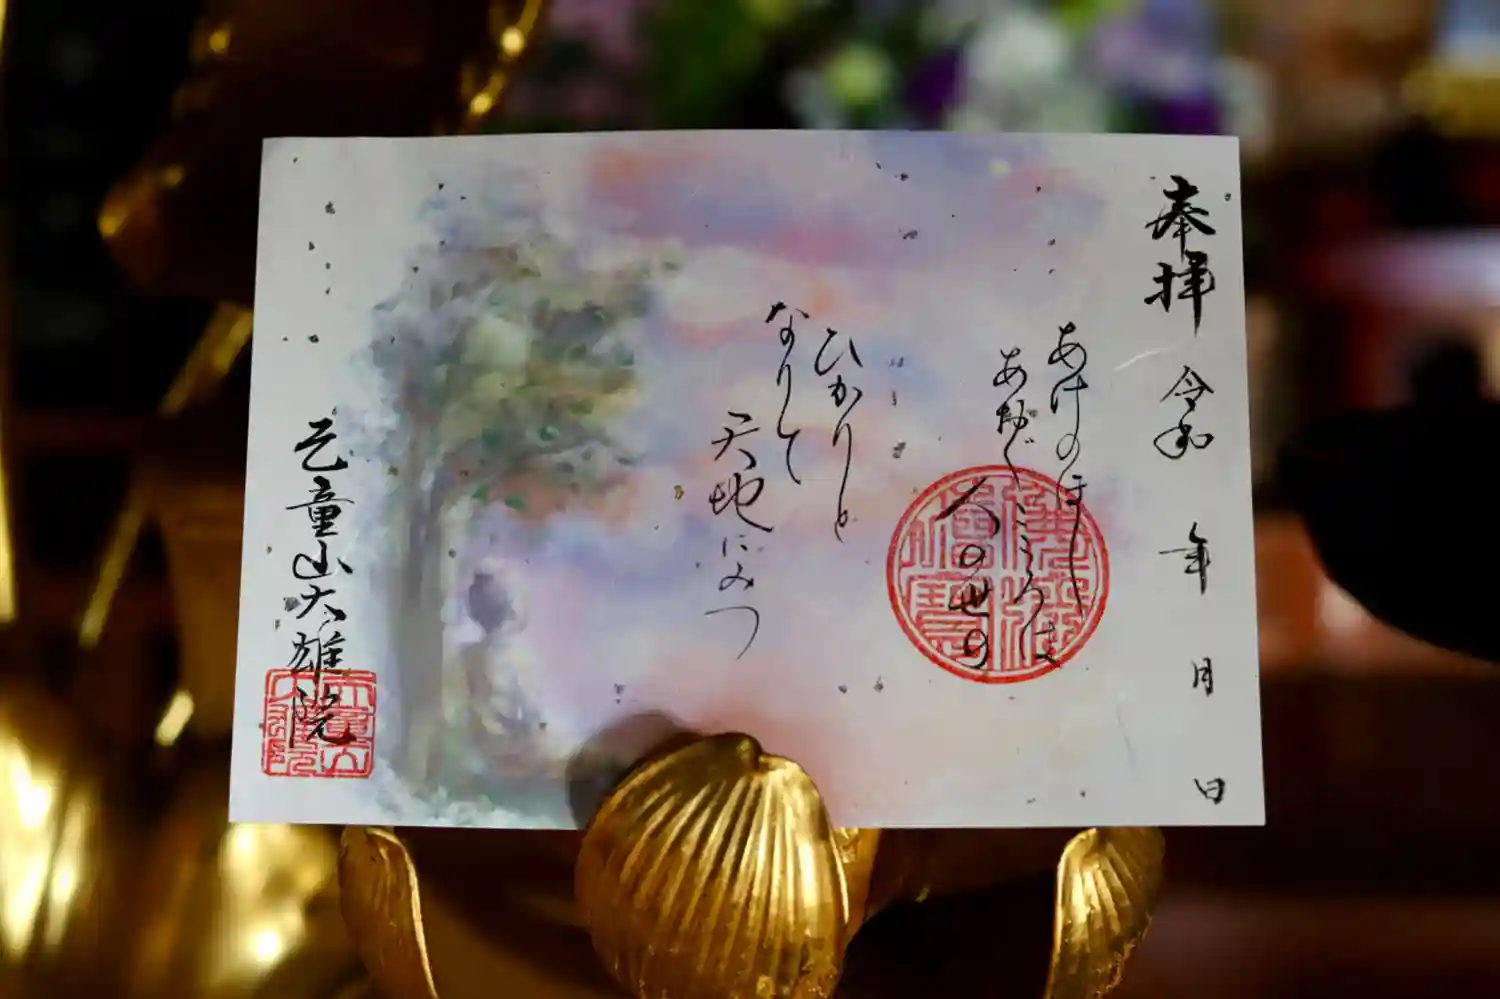 奉拝
令和 年 月 日
あけのほし
あおぐこころは
人の世の
ひかりと
なりて
天地にみつ
乞童山大雄院